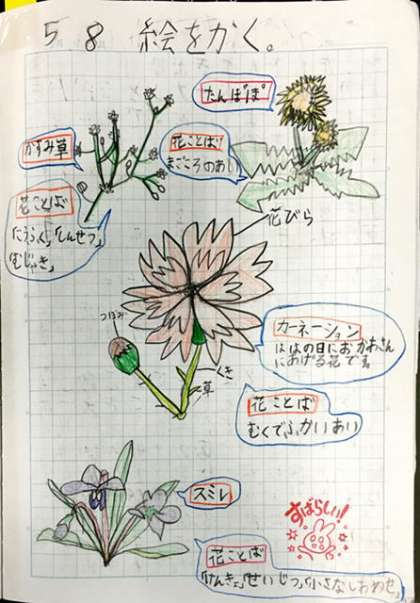 58 絵をかく。
たんぽぽ
花ことば
まごころのあい
かすみ草
花ことば
「こうふく」「しんせつ」
「むじゃき」
花びら
つぼみ
くき
草
カーネーション
ははの日におかあさん
にあげる花です。
花ことば
むくでふかいあい
スミレ
すばらしい!
花ことば
「けんきょ」「せいじつ」「小さなしあわせ」